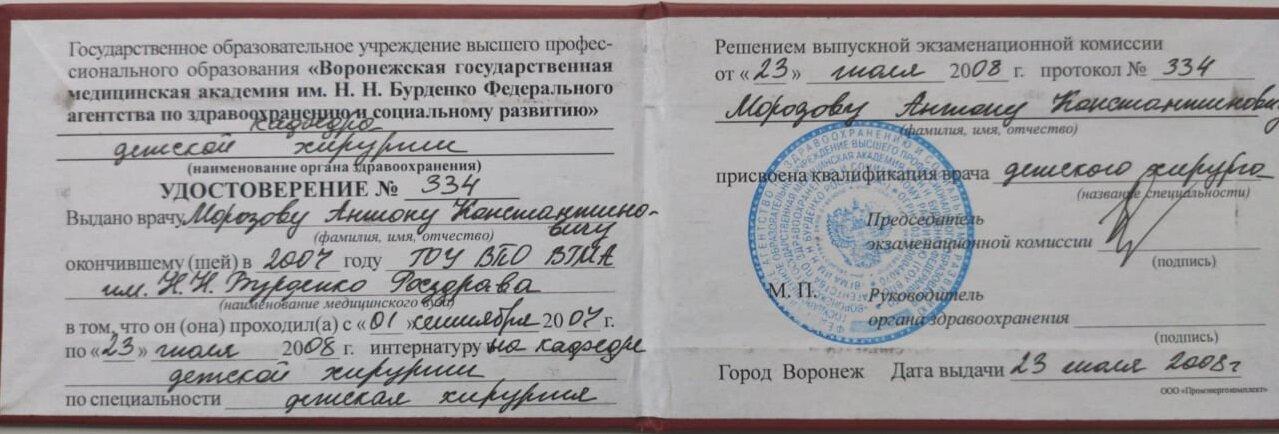 Государственное образовательное учреждение высшего профес-
сионального образования «Воронежская государственная
медицинская академия им. Н. Н. Бурденко Федерального
агентства по здравоохранению и социальному развитию»
кафедра
детской хирургии
(наименование органа здравоохранения)
УДОСТОВЕРЕНИЕ № 334
Выдано врачу Морозову Антону Константино-
вичу
(фамилия, имя, отчество)
окончившему (шей) в 2007 году ГОУ ВПО ВГМА
им. Н.Н. Бурденко Росздрава
(наименование медицинского вуза)
в том, что он (она) проходил(а) с «01» сентября 2007 г.
по «23» июля 2008 г. интернатуру на кафедре
детской хирургии
по специальности детская хирургия
Решением выпускной экзаменационной комиссии
от «23» июля 2008 г. протокол № 334
Морозову Антону Константиновичу
(фамилия, имя, отчество)
присвоена квалификация врача детского хирурга
(название специальности)
Председатель
экзаменационной комиссии
(подпись)
М. П.
Руководитель
органа здравоохранения
(подпись)
Город Воронеж Дата выдачи 23 июля 2008г
ООО «Промэнергокомплект»